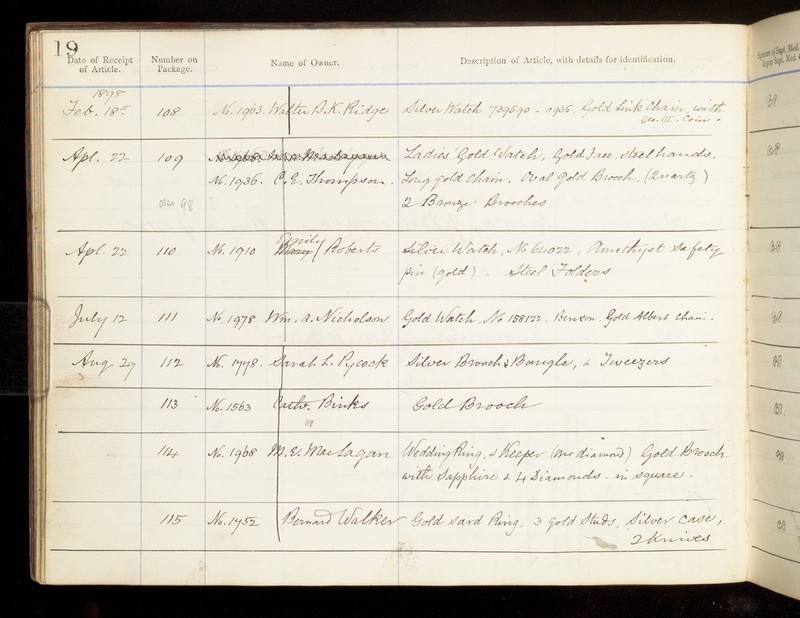 19
Date of Receipt of Article. Number on Package. Name of Owner. Description of Article, with details for identification.
1898
Feb. 18th 108 No. 1963 Walter D.K. Ridge Silver Watch 739590 - 0936. Gold Link Chain with
Geo. III. Coin.
Apl. 22 109 Ladies' Gold Watch, Gold Face, steel hands.
No. 1936. C. E. Thompson. Long gold chain. Oval Gold Brooch. (Quartz)
also 98 2 Bronze Brooches
Emily
Apl. 22 110 No. 1910 Mary Roberts Silver Watch, No 64022, Amethyst Safety
pin (gold). Steel Folders
July 12 111 No. 1978 Wm. A. Nicholson Gold Watch. No 158122. Benson. Gold Albert Chain.
Aug 29 112 No. 1778. Sarah L. Pycock Silver Brooch & Bangle, & Tweezers
113 No. 1563 Cathe. Binks Gold Brooch
114 No. 1968 M. E. MacLagan Wedding Ring & Keeper (one diamond) Gold Brooch
with Sapphire & 4 Diamonds in square.
115 No. 1752 Bernard Walker Gold sard Ring. 3 gold Studs, Silver case,
2 Knives